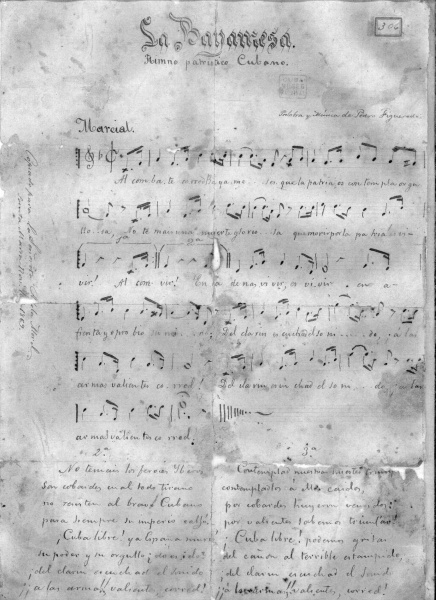 306
La Bayamesa.
Himno patriótico Cubano.
Palabra y Música de Pedro Figueredo
Marcial.
Al comba te corred baya me ses que la patria os contempla orgu
llo sa No te mais una muerte glorio sa que morir por la patria es vi
vir! Al com vir! En ca de nas vivir, es vivir en a
frenta y oprobio su mi do; Del clarin escuchad el so ni do, a las
armas valientes co rred! Del clarin escuchad el so ni do a las
armas valientes co rred.
2.ª
No temais los feroces Iberos
Son cobardes cual todo tirano
no resisten al bravo Cubano
para siempre su imperio cayó.
Cuba libre! ya España murió
su poder y su orgullo ¿do es ido?
¡del clarin escuchad el sonido
a las armas valientes corred!
3.ª
Contemplad nuestras huestes triunfantes
contempladlos a ellos caidos,
por cobardes huyeron vencidos
por valientes sabemos triunfar!
Cuba libre! podemos gritar
del cañon al terrible estampido,
del clarin escuchad el sonido
¡a las armas valientes, corred!